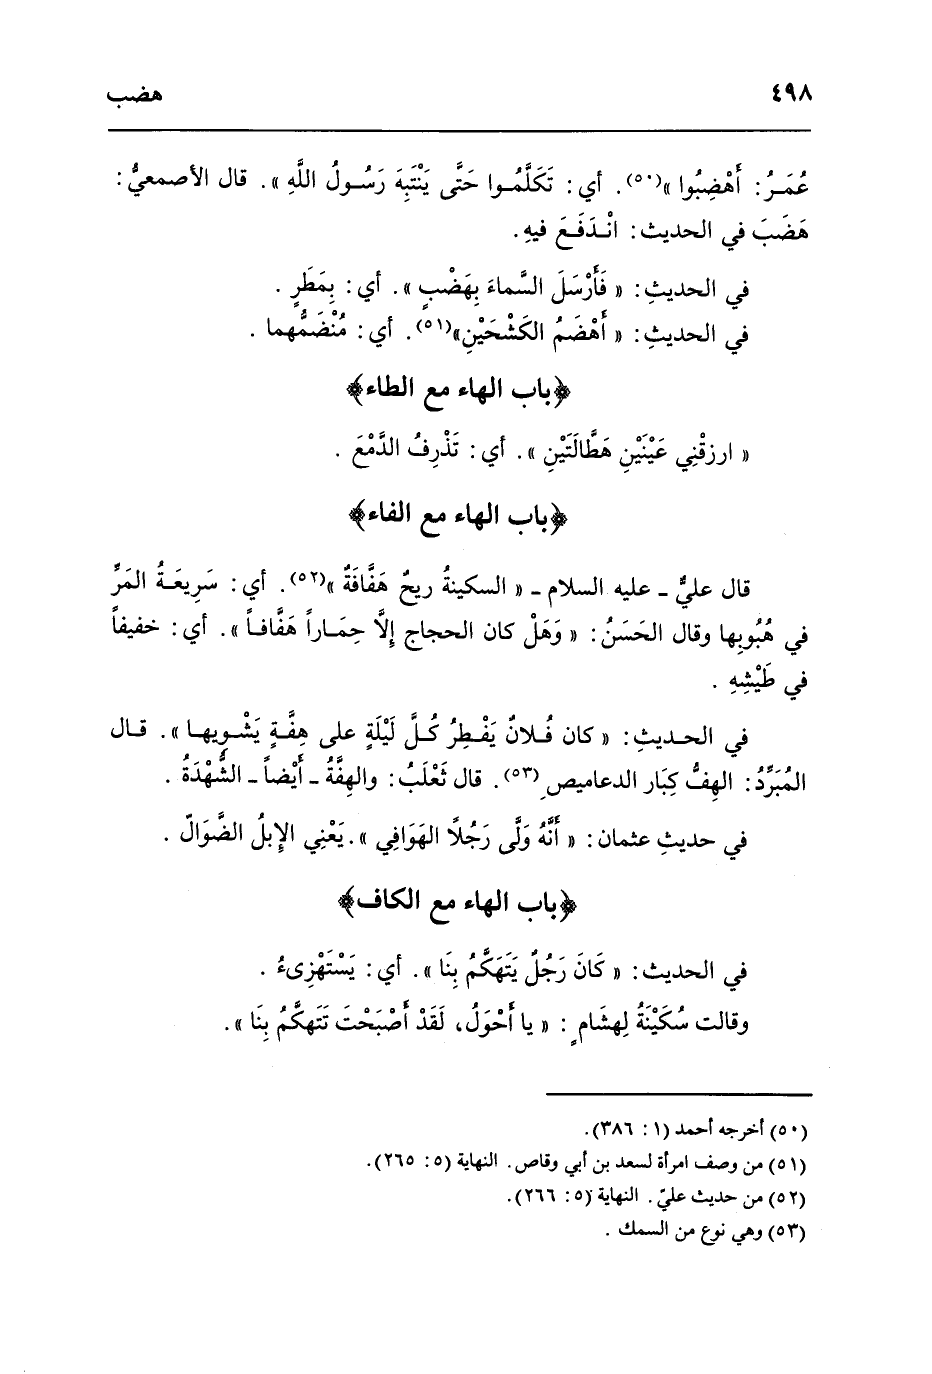 ٤٩٨ هضب
عُمَـرُ: أَهْضِبُوا »(٥٠). أي: تَكَلَّمُـوا حَتَّى يَنْتَبِهَ رَسُـولُ اللَّهِ ». قال الأصمعيُّ:
هَضَبَ في الحديث: انْـدَفَـعَ فيهِ.
في الحديثِ: « فَأَرْسَلَ السَّماءَ بِهَضْبٍ ». أي: بِمَطَرٍ .
في الحديثِ: « أَهْضَمُ الكَشْحَيْنِ»(٥١). أي: مُنْضَمُّهما .
﴿باب الهاء مع الطاء﴾
« ارزقْنِي عَيْنَيْنِ هَطَّالَتَيْنِ ». أي: تَذْرِفُ الدَّمْعَ .
﴿باب الهاء مع الفاء﴾
قال عليٌّ ـ عليه السلام ـ « السكينةُ ريحٌ هَفَّافَةٌ »(٥٢). أي: سَرِيعَـةُ المَرِّ
في هُبُوبِها وقال الحَسَنُ: « وَهَلْ كان الحجاج إِلَّا حِمَـاراً هَفَّافـاً ». أي: خفيفاً
في طَيْشِهِ .
في الحـديثِ: « كان فُـلانٌ يَفْـطِرُ كُـلَّ لَيْلَةٍ على هِفَّـةٍ يَشْـوِيهـا ». قـال
المُبَرِّدُ: الهِفُّ كِبَار الدعاميصِ(٥٣). قال ثَعْلَبُ: والهِفَّةُ ـ أَيْضاً ـ الشُّهْدَةُ .
في حديثِ عثمان: « أَنَّهُ وَلَّى رَجُلاً الهَوَافِي ». يَعْنِي الإِبلُ الضَّوَالّ .
﴿باب الهاء مع الكاف﴾
في الحديث: « كَانَ رَجُلٌ يَتَهَكَّمُ بِنَا ». أي: يَسْتَهْزِىءُ .
وقالت سُكَيْنَةُ لِهِشَامٍ : « يا أَحْوَلُ، لَقَدْ أَصْبَحْتَ تَتَهكَّمُ بِنَا ».
(٥٠) أخرجه أحمد (١ : ٣٨٦).
(٥١) من وصف امرأة لسعد بن أبي وقاص. النهاية (٥: ٢٦٥).
(٥٢) من حديث عليّ. النهاية (٥: ٢٦٦).
(٥٣) وهي نوع من السمك .